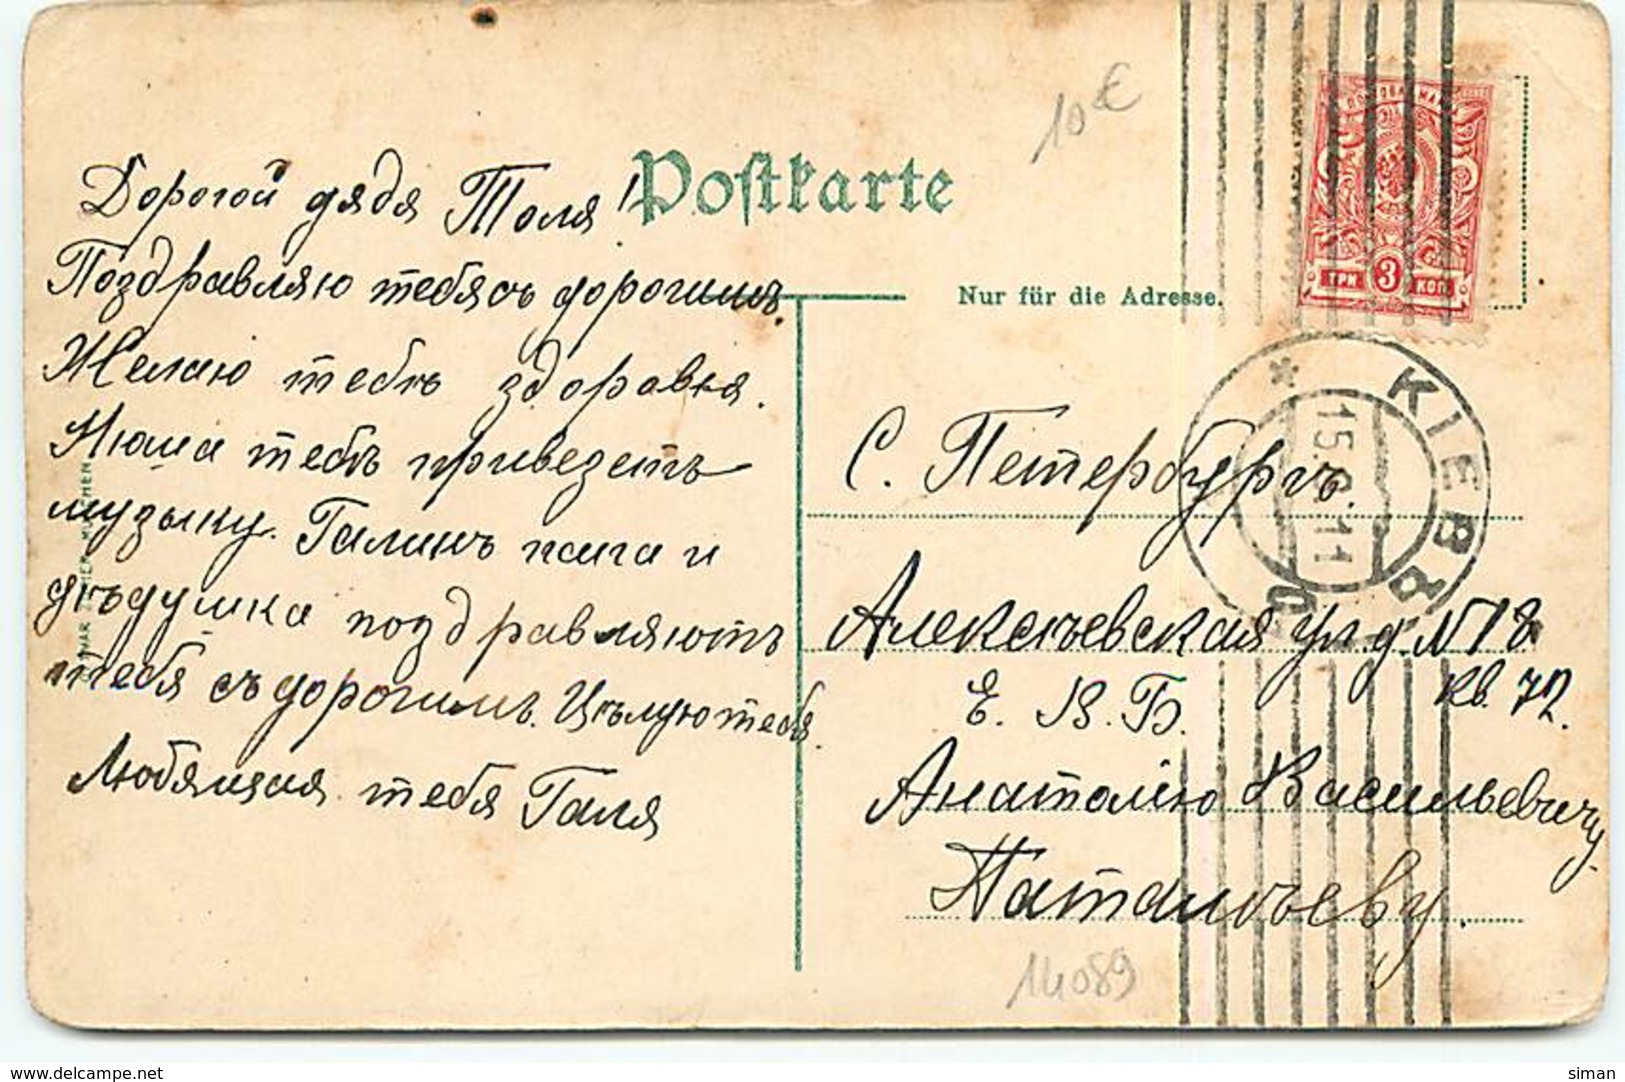 10 €
Postkarte
Nur für die Adresse.
ПОЧТОВАЯ МАРКА
ТРИ 3 КОП
КІЕВЪ
15.6.11
Дорогой дядя Толя!
Поздравляю тебя съ дорогимъ.
Желаю тебѣ здоровья.
тебѣ привезетъ
музыку. Галинъ папа и
дѣдушка поздравляютъ
тебя съ дорогимъ. Цѣлую тебя.
Любящая тебя Галя
С. Петербургъ
Алексѣевская ул. д. № 18
кв. 72.
Е. В. Б.
Анатолію Васильевичу
14089
delcampe.net
siman